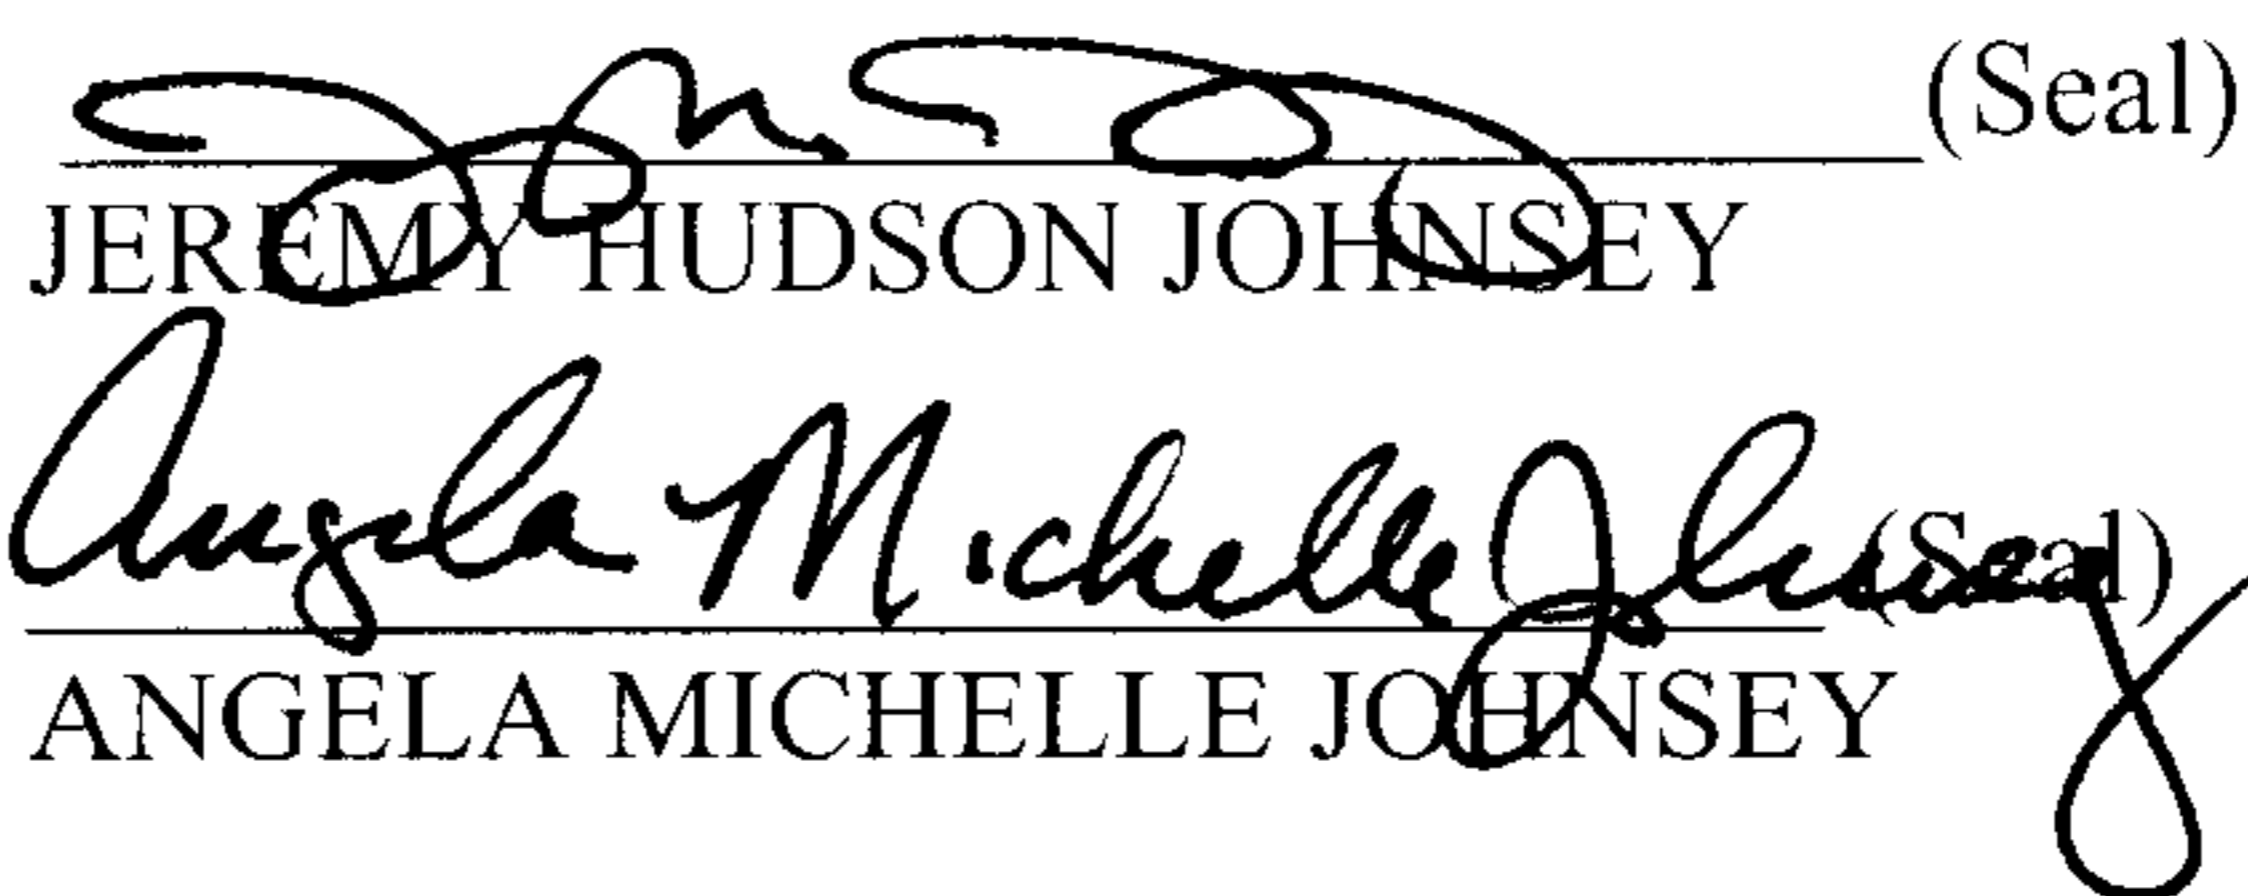 (Seal)
JEREMY HUDSON JOHNSEY
Angela Michelle Johnsey (Seal)
ANGELA MICHELLE JOHNSEY